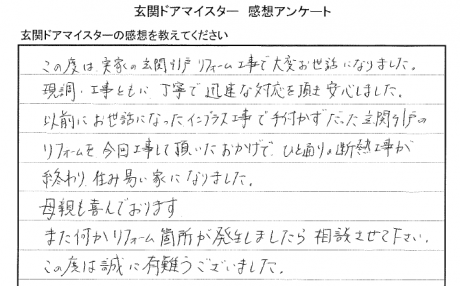 玄関ドアマイスター 感想アンケート
玄関ドアマイスターの感想を教えてください
この度は実家の玄関引戸リフォーム工事で大変お世話になりました。
現調・工事ともに丁寧で迅速な対応を頂き安心しました。
以前にお世話になったインプラス工事で手付かずだった玄関引戸の
リフォームを今回工事して頂いたおかげで、ひと通りの断熱工事が
終わり、住み易い家になりました。
母親も喜んでおります
また何かリフォーム箇所が発生しましたら相談させて下さい。
この度は誠に有難うございました。